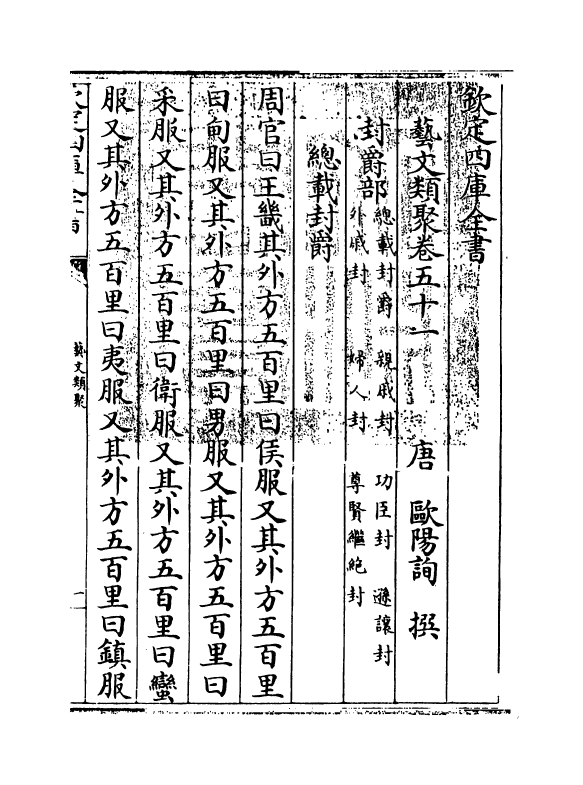 欽定四庫全書
藝文類聚卷五十一
唐 歐陽詢 撰
封爵部
總載封爵 親戚封 功臣封 遜讓封
外戚封 婦人封 尊賢繼絶封
總載封爵
周官曰王畿其外方五百里曰侯服又其外方五百里
曰甸服又其外方五百里曰男服又其外方五百里曰
采服又其外方五百里曰衛服又其外方五百里曰蠻
服又其外方五百里曰夷服又其外方五百里曰鎮服
藝文類聚